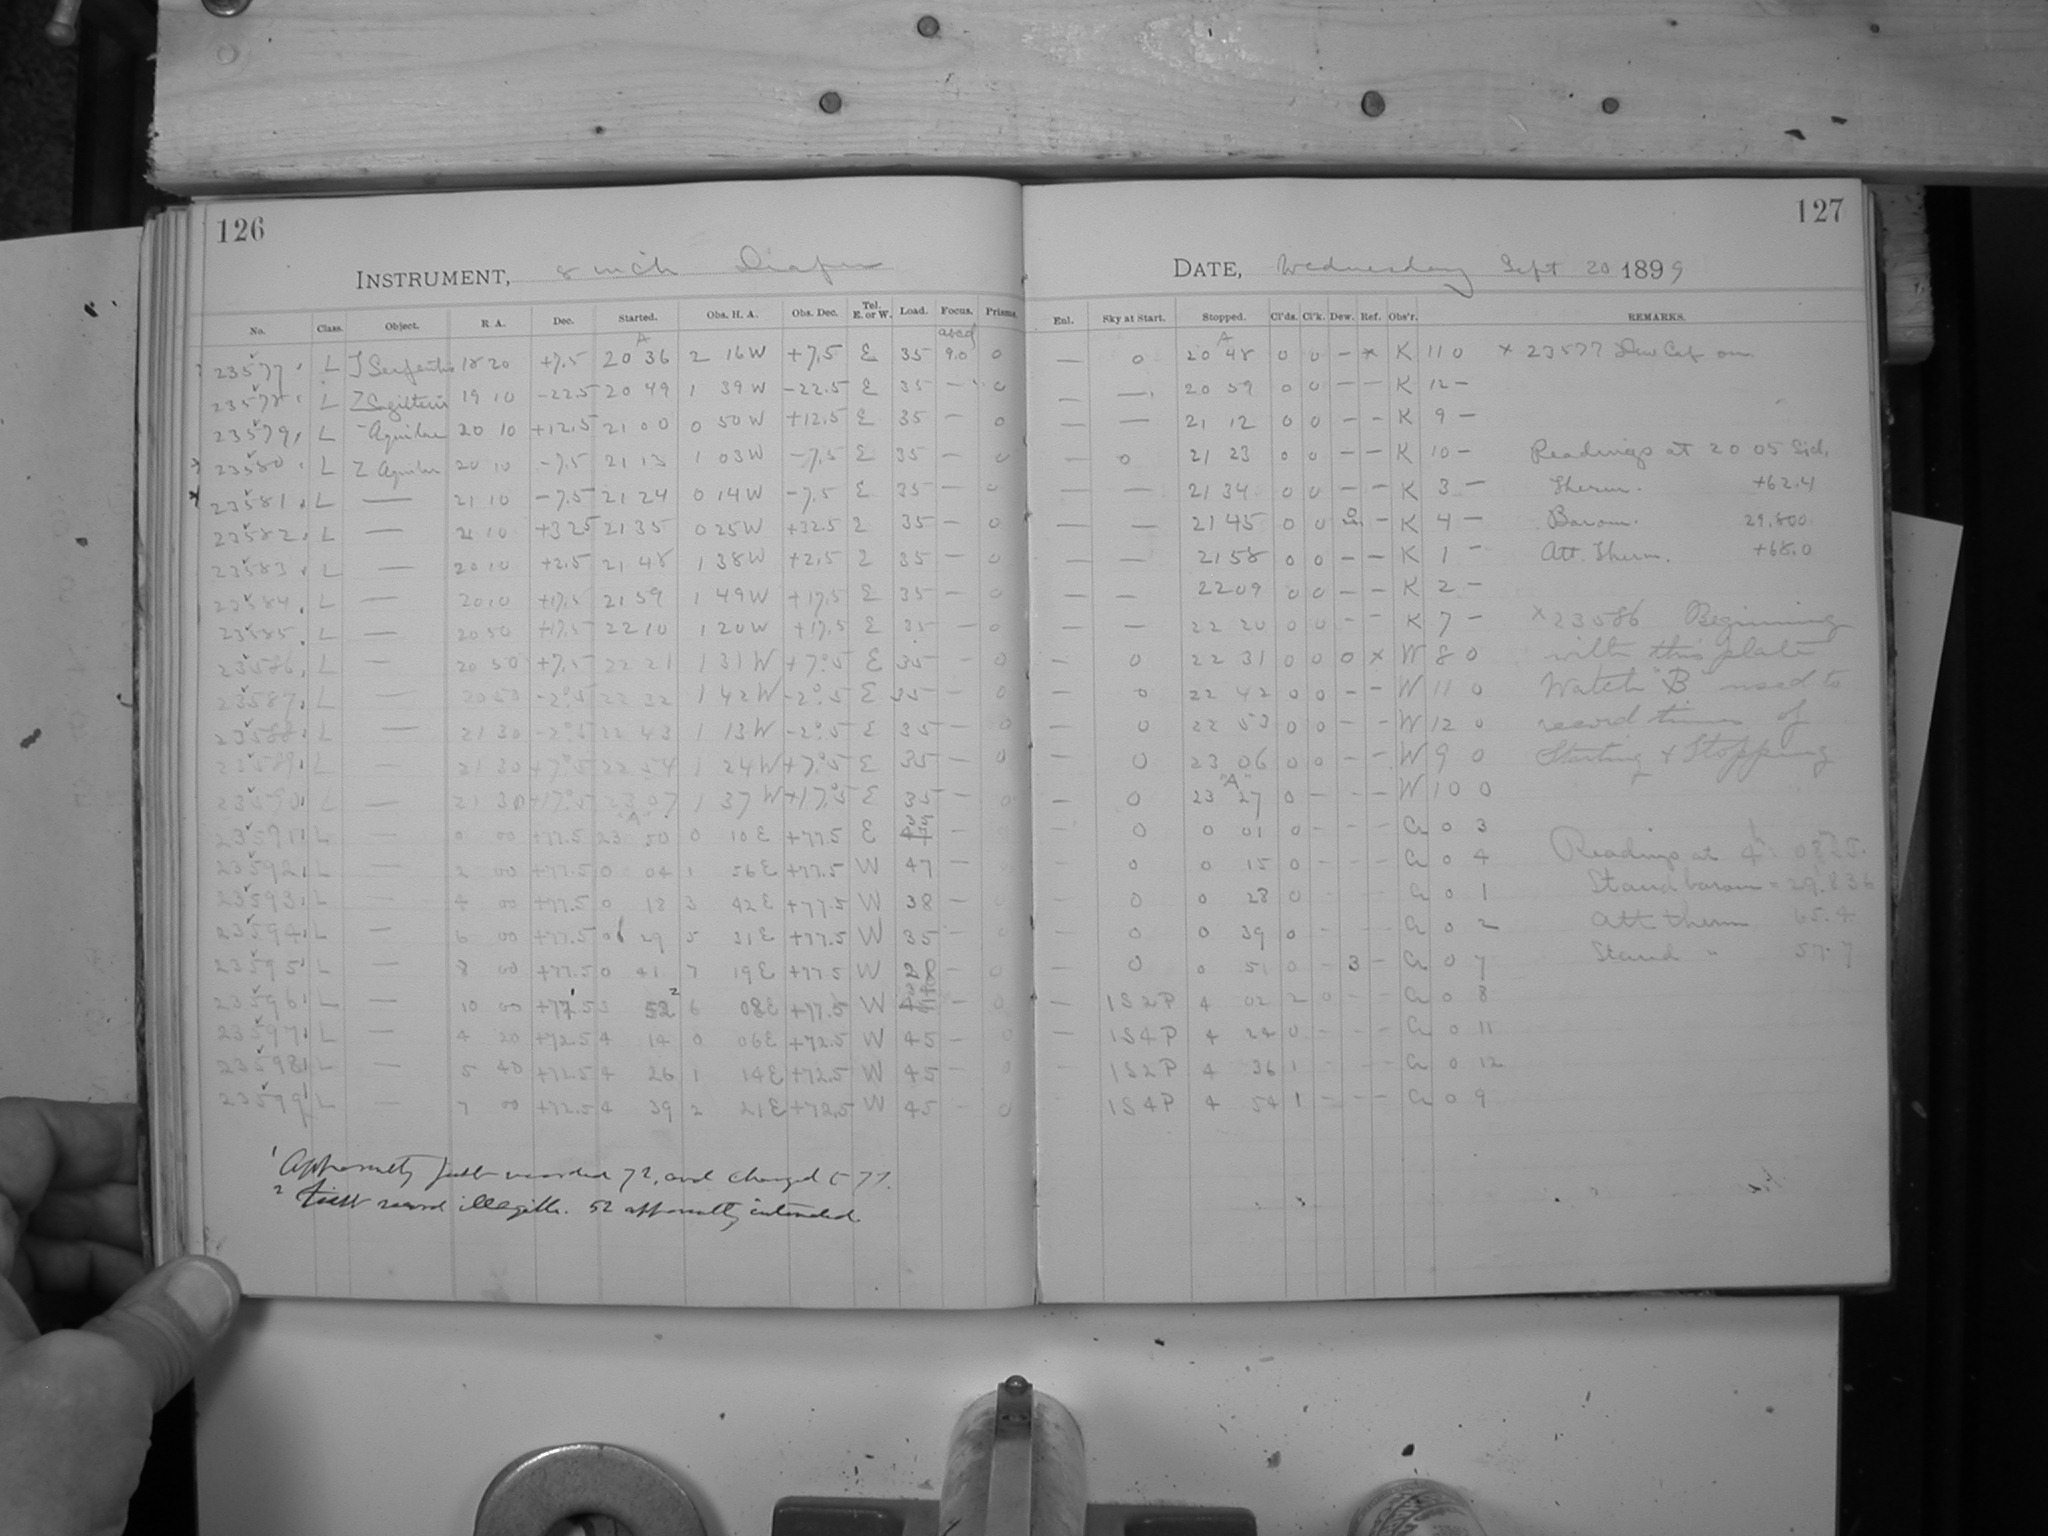 126
INSTRUMENT, 8 inch Draper
No. Class. Object. R. A. Dec. Started. Obs. H. A. Obs. Dec. Tel. E. or W. Load. Focus. Prisms.
A
23577 L T Serpentis 18 20 +7.5 20 36 2 16 W +7.5 E 35 9.0 0
23578 L Z Sagittarii 19 10 -22.5 20 49 1 39 W -22.5 E 35 - 0
23579 L - Aquilae 20 10 +12.5 21 00 0 50 W +12.5 E 35 - 0
23580 L Z Aquilae 20 10 -7.5 21 13 1 03 W -7.5 E 35 - 0
23581 L — 21 10 -7.5 21 24 0 14 W -7.5 E 35 - 0
23582 L — 21 10 +32.5 21 35 0 25 W +32.5 E 35 - 0
23583 L — 20 10 +2.5 21 48 1 38 W +2.5 E 35 - 0
23584 L — 20 10 +17.5 21 59 1 49 W +17.5 E 35 - 0
23585 L — 20 50 +17.5 22 10 1 20 W +17.5 E 35 - 0
23586 L — 20 50 +7.5 22 21 1 31 W +7.5 E 35 - 0
23587 L — 20 50 -2.5 22 32 1 42 W -2.5 E 35 - 0
23588 L — 21 30 -2.5 22 43 1 13 W -2.5 E 35 - 0
23589 L — 21 30 +7.5 22 54 1 24 W +7.5 E 35 - 0
23590 L — 21 30 +17.5 23 07 1 37 W +17.5 E 35 - 0
"A"
23591 L — 0 00 +77.5 23 50 0 10 E +77.5 E 35 - 0
23592 L — 2 00 +77.5 0 04 1 56 E +77.5 W 47 - 0
23593 L — 4 00 +77.5 0 18 3 42 E +77.5 W 38 - 0
23594 L — 6 00 +77.5 0 29 5 31 E +77.5 W 35 - 0
23595 L — 8 00 +77.5 0 41 7 19 E +77.5 W 28 - 0
23596 L — 10 00 +77.5 3 52 6 08 E +77.5 W - 0
23597 L — 4 20 +72.5 4 14 0 06 E +72.5 W 45 - 0
23598 L — 5 40 +72.5 4 26 1 14 E +72.5 W 45 - 0
23599 L — 7 00 +72.5 4 39 2 21 E +72.5 W 45 - 0
1 Apparently first recorded 72, and changed to 77.
2 First record illegible. 52 apparently intended.
127
DATE, Wednesday Sept 20 1899
Enl. Sky at Start. Stopped. Cl'ds. Cl'k. Dew. Ref. Obs'r. REMARKS.
A
— 0 20 48 0 0 - x K 11 0 x 23577 Dew Cap on
— — 20 59 0 0 - - K 12 -
— — 21 12 0 0 - - K 9 -
— 0 21 23 0 0 - - K 10 - Readings at 20 05 Sid.
— — 21 34 0 0 - - K 3 - Therm. +62.4
— — 21 45 0 0 0 - K 4 - Barom. 29.800
— — 21 58 0 0 - - K 1 - Att. Therm. +68.0
— — 22 09 0 0 - - K 2 -
— — 22 20 0 0 - - K 7 - x 23586 Beginning
— 0 22 31 0 0 0 x W 8 0 with this plate
— 0 22 42 0 0 - - W 11 0 Watch "B" used to
— 0 22 53 0 0 - - W 12 0 record times of
— 0 23 06 0 0 - - W 9 0 Starting & Stopping
"A"
— 0 23 27 0 - - - W 10 0
0 0 01 0 - - - 0 3
0 0 15 0 - - - 0 4 Readings at 4h 08m
0 0 28 0 - - - 0 1 Stand barom = 29.836
0 0 39 0 - - - 0 2 Att therm 65.4
0 0 51 0 - 3 - 0 7 Stand " 57.7
— 1S2P 4 02 2 0 - - 0 8
— 1S4P 4 24 0 - - - 0 11
— 1S2P 4 36 1 - - - 0 12
1S4P 4 54 1 - - - 0 9